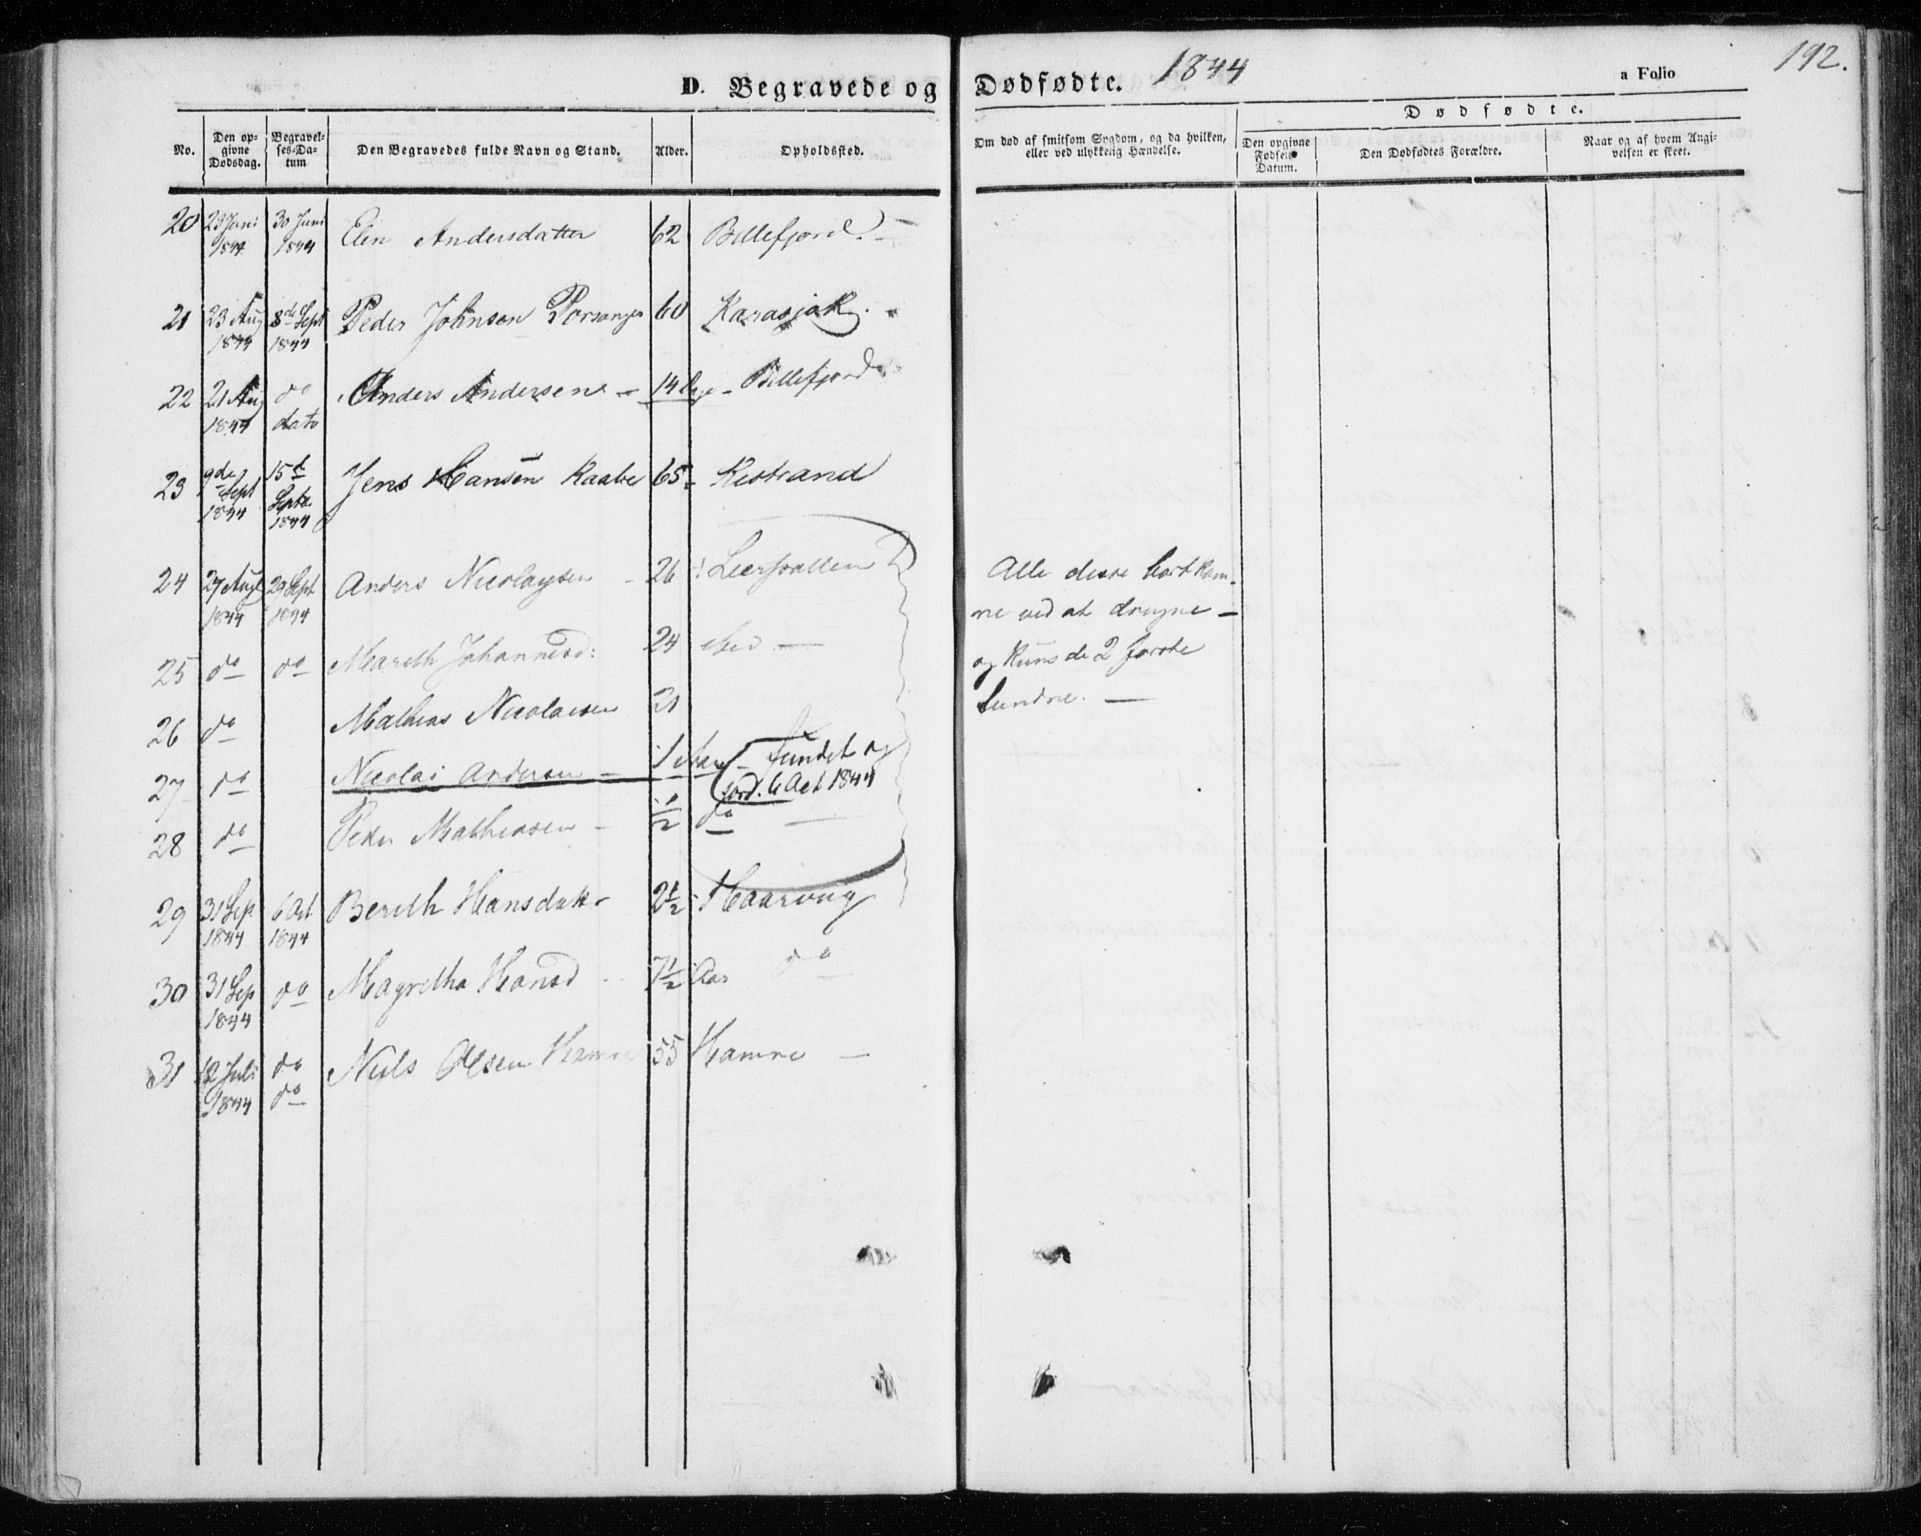 192.
D. Begravede og Dødfødte. 1844
a Folio
No.
Den opgivne Dødsdag.
Begravelses-Datum
Den Begravedes fulde Navn og Stand.
Alder.
Opholdssted.
Om død af smitsom Sygdom, og da hvilken, eller ved ulykkelig Hændelse.
Dødfødte.
Den opgivne Fødsels Datum.
Den Dødfødtes Forældre.
Naar og af hvem Angivelsen er skeet.
20 23 Juni 1844 30 Juni 1844 Elen Andersdatter 62 Billefjord.
21 23 Aug 1844 8de Sept 1844 Peder Johnsen Porsanger 60 Karasjok.
22 21 Aug 1844 do dato Anders Andersen 14 Dage Billefjord
23 9de Sept 1844 15de Septe 1844 Jens Hansen Raabe 65 Kistrand
24 27 Augt 1844 29 Sept 1844 Anders Nicolaysen 26
25 do do Mareth Johannesd: 24
26 do Mathias Nicolaisen 21
27 do Nicolai Andersen 1 Aar fundet og jord. 6 Oct 1844
28 do Peder Mathiasen 1/2 do
Alle disse bortkom-
ne ved at drugne –
og kuns de 2 første
fundne. –
29 31 Sep 1844 6 Oct 1844 Berith Hansdatt 2 1/2
30 31 Sep 1844 do Magretha Hansd 7 1/2 Aar do
31 12 Juli 1844 do do Niels Olsen Hamne 55 Hamne –